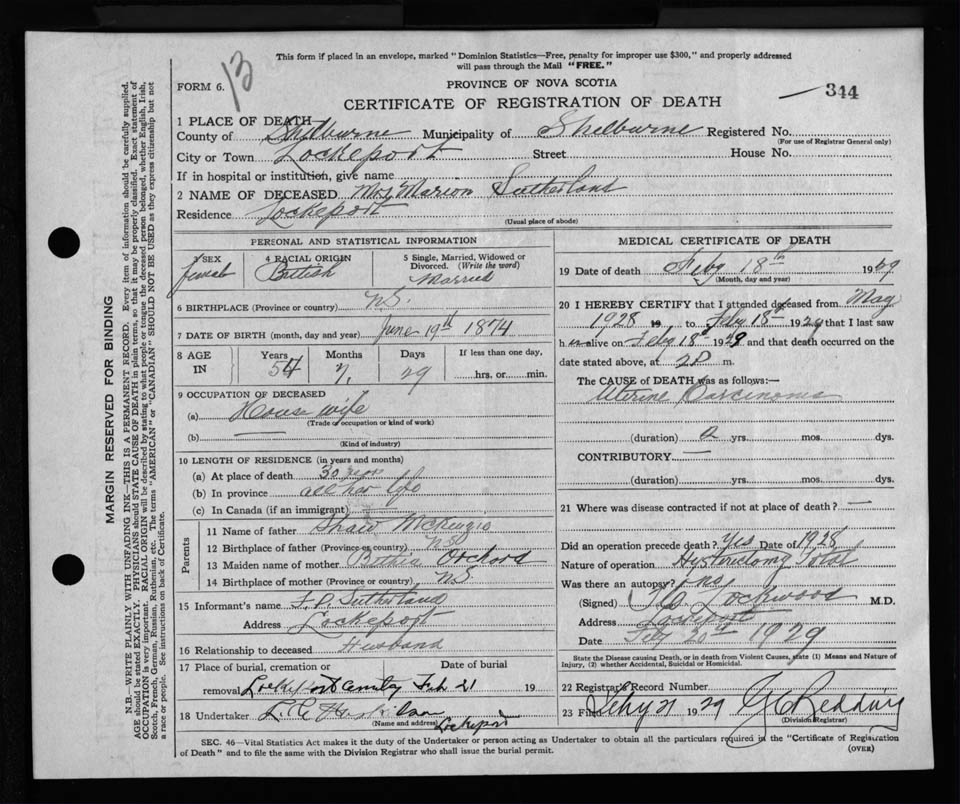 This form if placed in an envelope, marked "Dominion Statistics—Free, penalty for improper use $300," and properly addressed
will pass through the Mail "FREE."
13
FORM 6.
PROVINCE OF NOVA SCOTIA
344
CERTIFICATE OF REGISTRATION OF DEATH
1 PLACE OF DEATH
County of Shelburne Municipality of Shelburne Registered No.
(For use of Registrar General only)
City or Town Lockeport Street House No.
If in hospital or institution, give name
2 NAME OF DECEASED Mrs Marion Sutherland
Residence Lockeport
(Usual place of abode)
PERSONAL AND STATISTICAL INFORMATION
3 SEX
4 RACIAL ORIGIN
5 Single, Married, Widowed or
Divorced. (Write the word)
British
Married
6 BIRTHPLACE (Province or country) N.S.
7 DATE OF BIRTH (month, day and year) June 19th 1874
8 AGE
IN
Years Months Days
If less than one day,
54 7 29
hrs. or min.
9 OCCUPATION OF DECEASED
(a) House wife
(Trade occupation or kind of work)
(b) —
(Kind of industry)
10 LENGTH OF RESIDENCE (in years and months)
(a) At place of death 30 years
(b) In province all her life
(c) In Canada (if an immigrant)
Parents
11 Name of father McKenzie
12 Birthplace of father (Province or country) N.S.
13 Maiden name of mother Orchard
14 Birthplace of mother (Province or country) N.S.
15 Informant's name Sutherland
Address Lockeport
16 Relationship to deceased Husband
17 Place of burial, cremation or
Date of burial
removal Lockeport Feb 21 19
18 Undertaker
(Name and address) Lockeport
MEDICAL CERTIFICATE OF DEATH
19 Date of death Feby 18th 1929
(Month, day and year)
20 I HEREBY CERTIFY that I attended deceased from May
1928 19 to Feby 18th 1929 that I last saw
h er alive on Feby 18th 1929 and that death occurred on the
date stated above, at 2 P m.
The CAUSE of DEATH was as follows:—
Uterine Carcinoma
(duration) yrs. mos. dys.
CONTRIBUTORY —
(duration) yrs. mos. dys.
21 Where was disease contracted if not at place of death? —
Did an operation precede death? Yes Date of 1928
Nature of operation Hysterectomy Total
Was there an autopsy? no
(Signed) Lockwood M.D.
Address Lockeport
Date Feby 20th 1929
State the Disease causing Death, or in death from Violent Causes, state (1) Means and Nature of
Injury, (2) whether Accidental, Suicidal or Homicidal.
22 Registrar's Record Number
23 Filed Feby 21 1929 Redding
(Division Registrar)
SEC. 46—Vital Statistics Act makes it the duty of the Undertaker or person acting as Undertaker to obtain all the particulars required in the "Certificate of Registration
of Death" and to file the same with the Division Registrar who shall issue the burial permit.
(OVER)
MARGIN RESERVED FOR BINDING
N.B.—WRITE PLAINLY WITH UNFADING INK—THIS IS A PERMANENT RECORD. Every item of information should be carefully supplied.
AGE should be stated EXACTLY. PHYSICIANS should STATE CAUSE OF DEATH in plain terms, so that it may be properly classified. Exact statement of
OCCUPATION is very important. RACIAL ORIGIN will be described by stating to what people or tongue the deceased person belonged, whether English, Irish,
Scotch, French, German, Russian, Ruthenian, etc. The terms "AMERICAN" or "CANADIAN" SHOULD NOT BE USED as they express citizenship but not
a race or people. See instructions on back of Certificate.